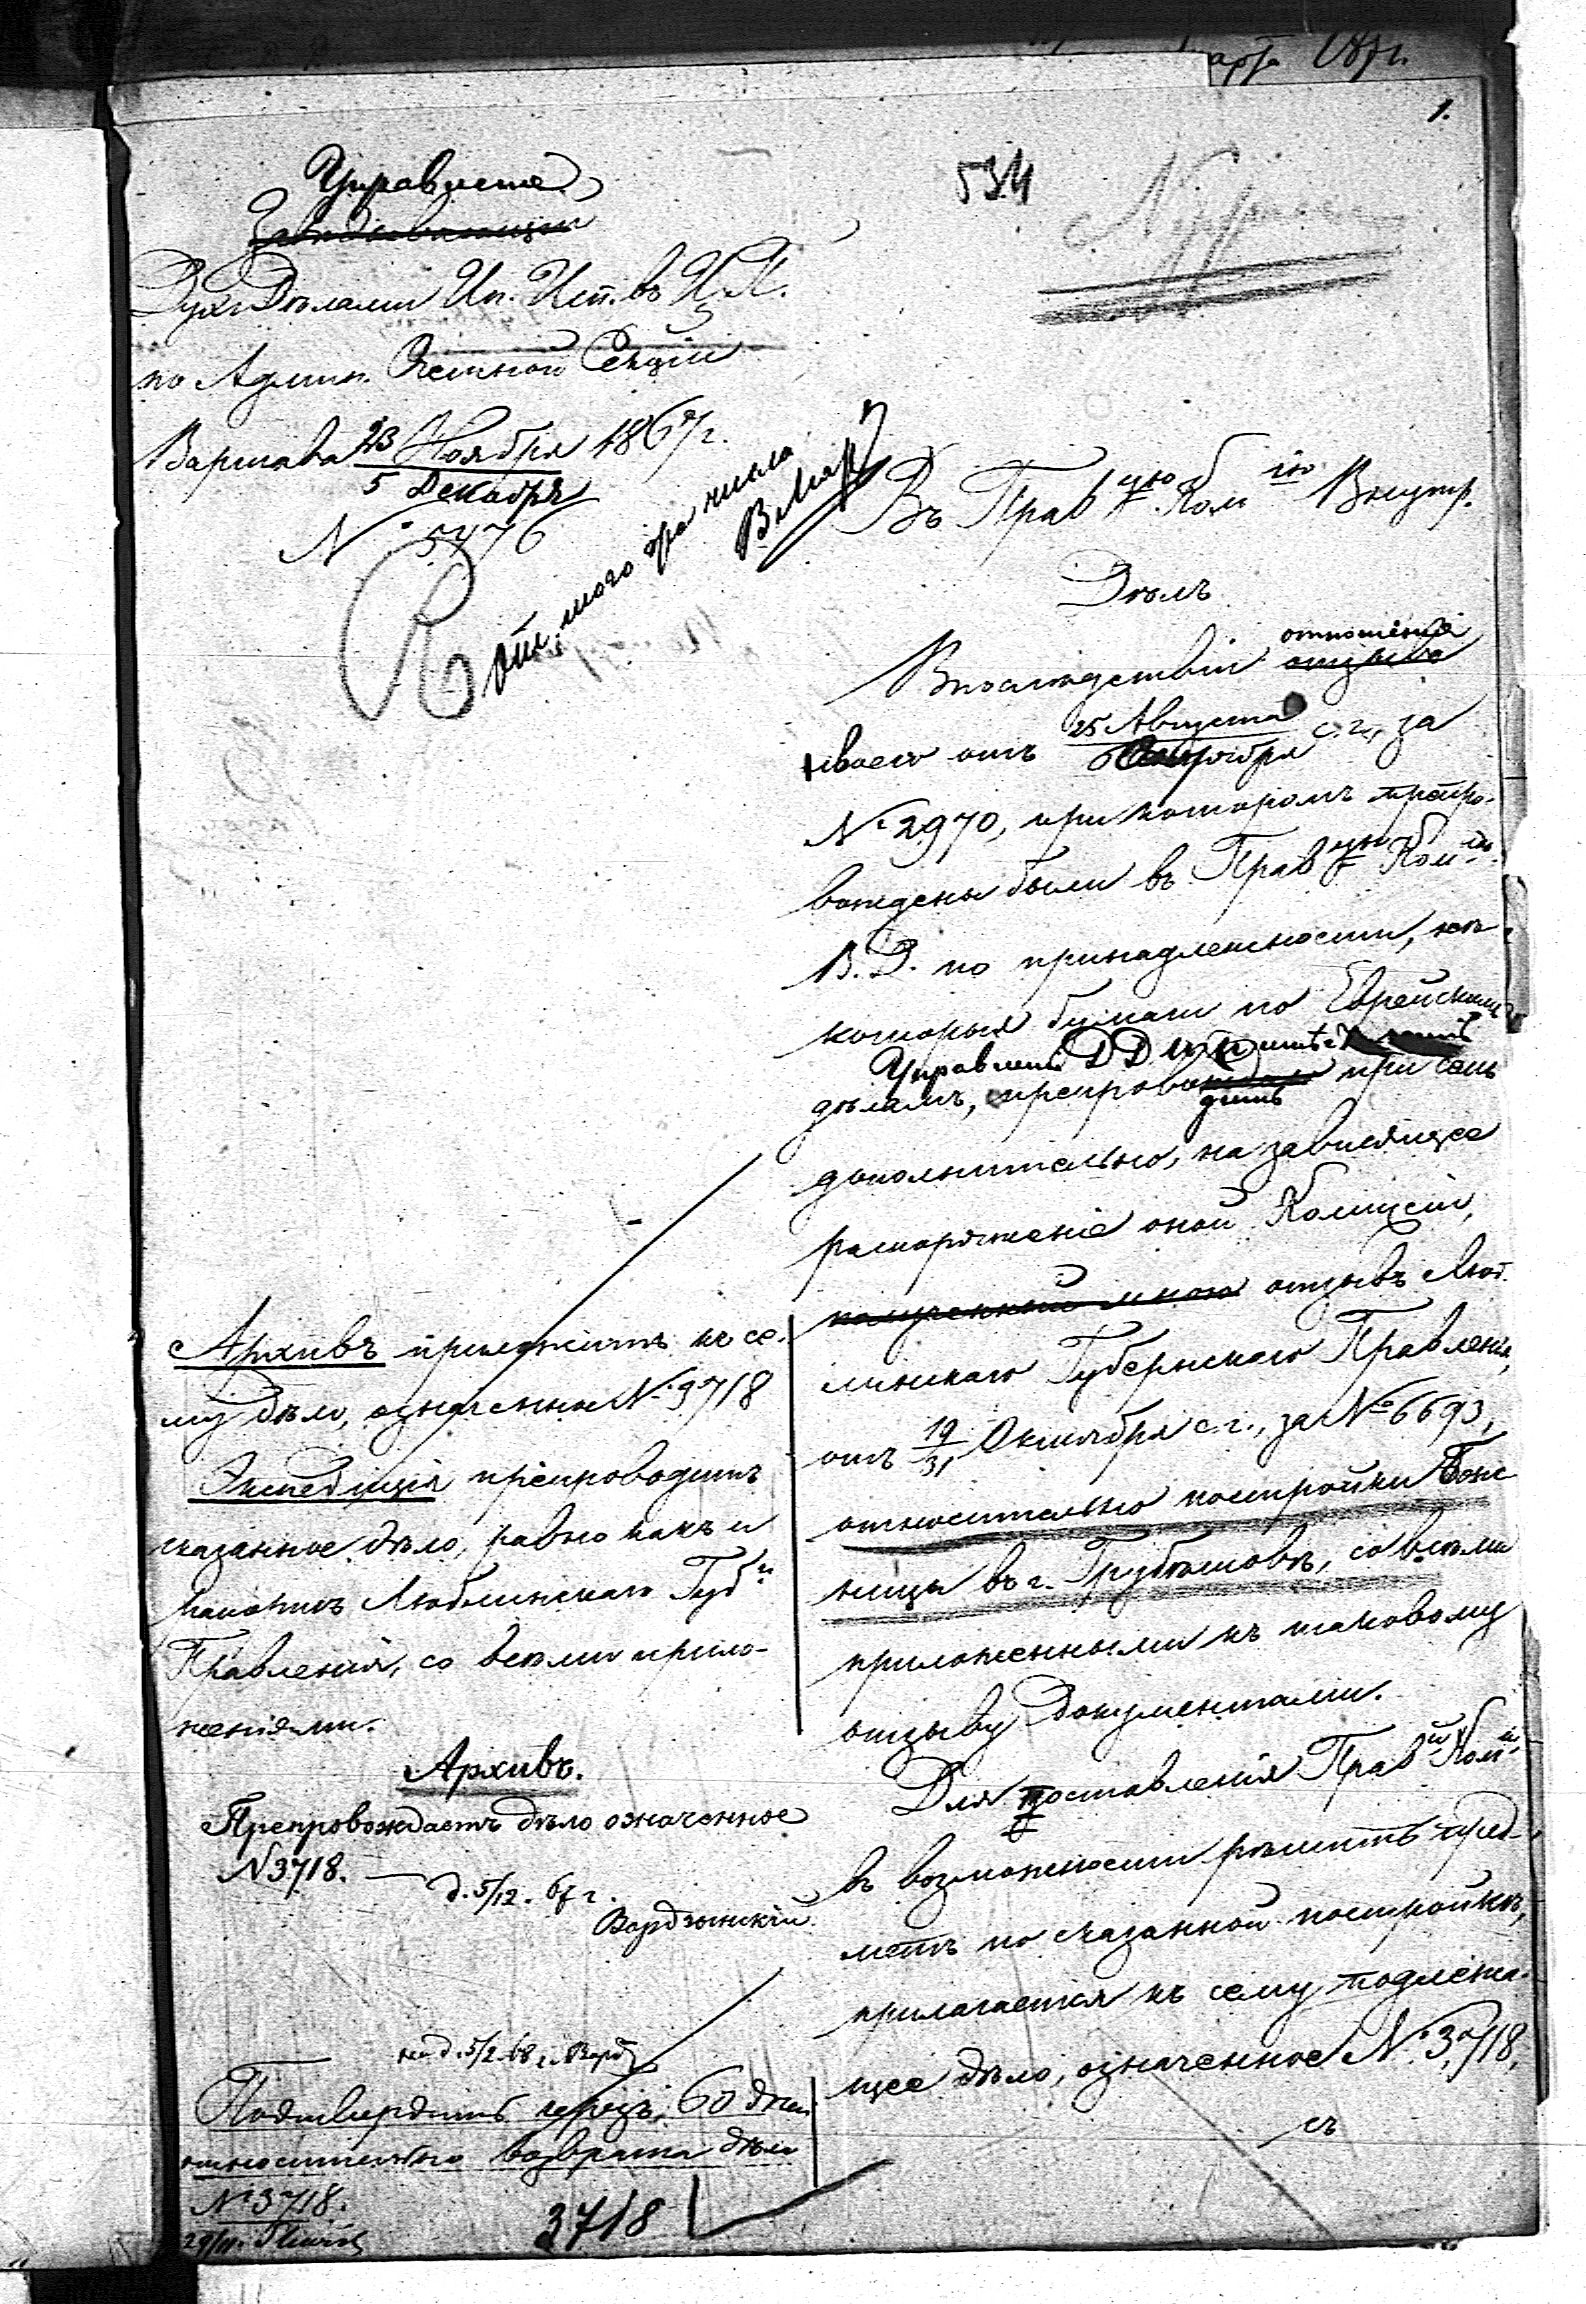 1.
534
Управленіе
Завѣдывающій
Дух. Дѣлами Ин. Исп. въ Ц. П.
по Админ. Счетной Секціи
Варшава 23 Ноября 1867 г.
5 Декабря
№ 5476
Въ Прав ую Ком ію Внутр.
Дѣлъ
Впослѣдствіи отношенія
отзыва
своего отъ 25 Августа с. г., за
6 Сентября
№ 2970, при которомъ препро-
вождены были въ Прав ую Ком ію
В. Д. по принадлежности, нѣ-
которыя бумаги по Еврейскимъ
Управленіе Д Д И И имѣетъ честь
дѣламъ, препровождаю при семъ
дить
дополнительно, на зависящее
распоряженіе оной Комиссіи,
полученный мною отзывъ Люб-
линскаго Губернскаго Правленія,
отъ 19/31 Октября с. г., за № 6693,
относительно постройки Бож
ницы въ г. Грубешовѣ, со всѣми
приложенными къ таковому
отзыву документами.
Для поставленія Прав й Ком іи
въ возможности рѣшить пред-
метъ по сказанной постройкѣ,
прилагается къ сему подлежа-
щее дѣло, означенное № 3718,
съ
Архивъ приложитъ къ се-
му дѣло, означенное № 3718
Экспедиція препроводитъ
сказанное дѣло, равно какъ и
рапортъ Люблинскаго Губ.
Правленія, со всѣми прило-
женіями.
Архивъ.
Препровождаетъ дѣло означенное
№ 3718.
д. 5/12. 67 г.
Вардзынскій
Подтвердить чрезъ 60 дней
относительно возврата дѣла
№ 3718.
3718